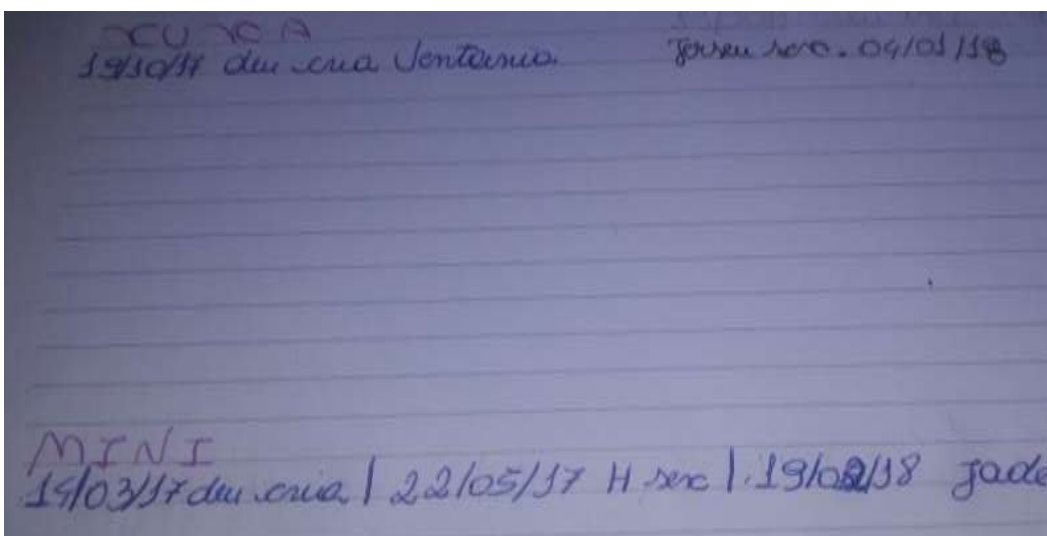 XUXA
19/10/17 deu cria Ventania. 04/01/18
MINI
19/03/17 deu cria | 22/05/17 H sex | 19/02/18 Jade